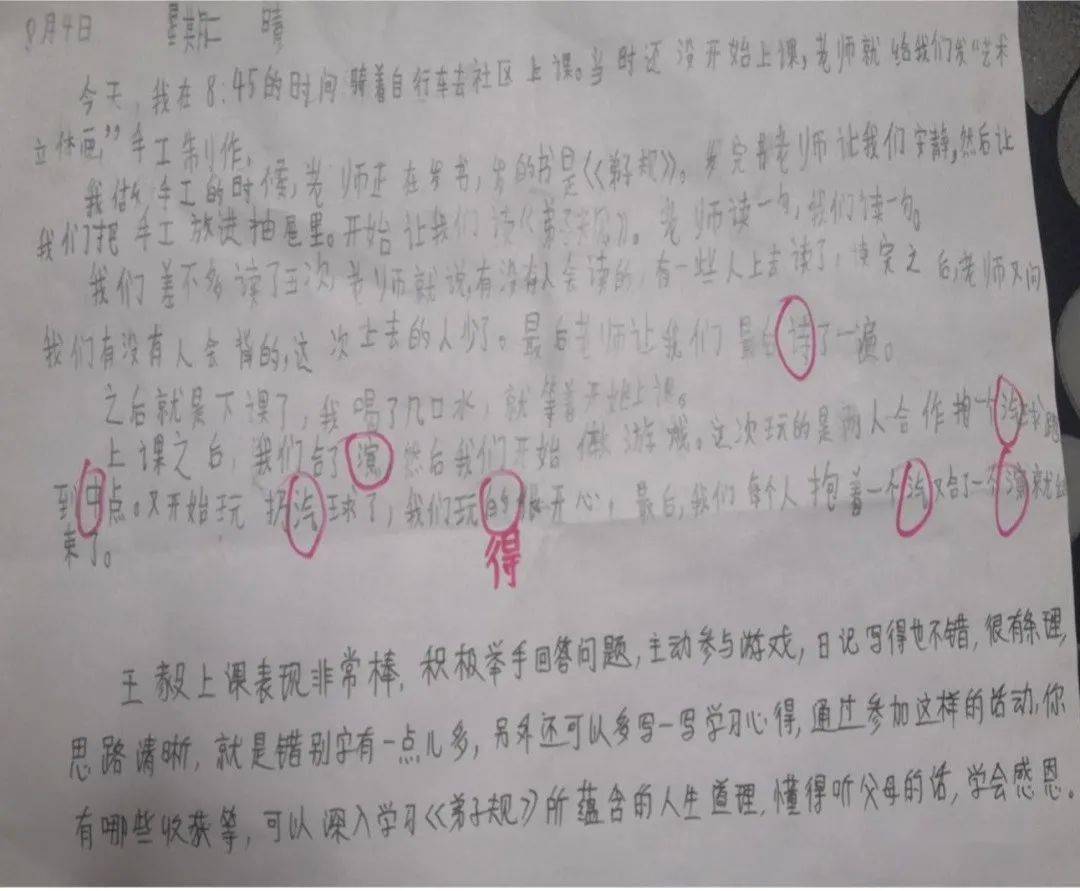 8月4日 星期二 晴
今天,我在8:45的时间骑着自行车去社区上课。当时还没开始上课,老师就给我们发“艺术
立体画”手工制作。
我做手工的时候,老师正在发书,发的书是《弟子规》。发完书老师让我们安静,然后让
我们把手工放进抽屉里。开始让我们读《弟子规》。老师读一句,我们读一句。
我们差不多读了五次,老师就说,有没有人会读的,有一些人上去读了,读完之后,老师又问
我们有没有人会背的,这次上去的人少了。最后老师让我们最后诗了一遍。
之后就是下课了,我喝了几口水,就等着开始上课。
上课之后,我们合了演 然后我们开始做游戏。这次玩的是两人合作抱一个汽球跑
到中点。又开始玩扔汽球了,我们玩的很开心,最后,我们每个人抱着一个汽 又合了一个演就结
束了。
得
王毅上课表现非常棒,积极举手回答问题,主动参与游戏,日记写得也不错,很有条理,
思路清晰,就是错别字有一点儿多,另外还可以多写一写学习心得,通过参加这样的活动,你
有哪些收获等,可以深入学习《弟子规》所蕴含的人生道理,懂得听父母的话,学会感恩。